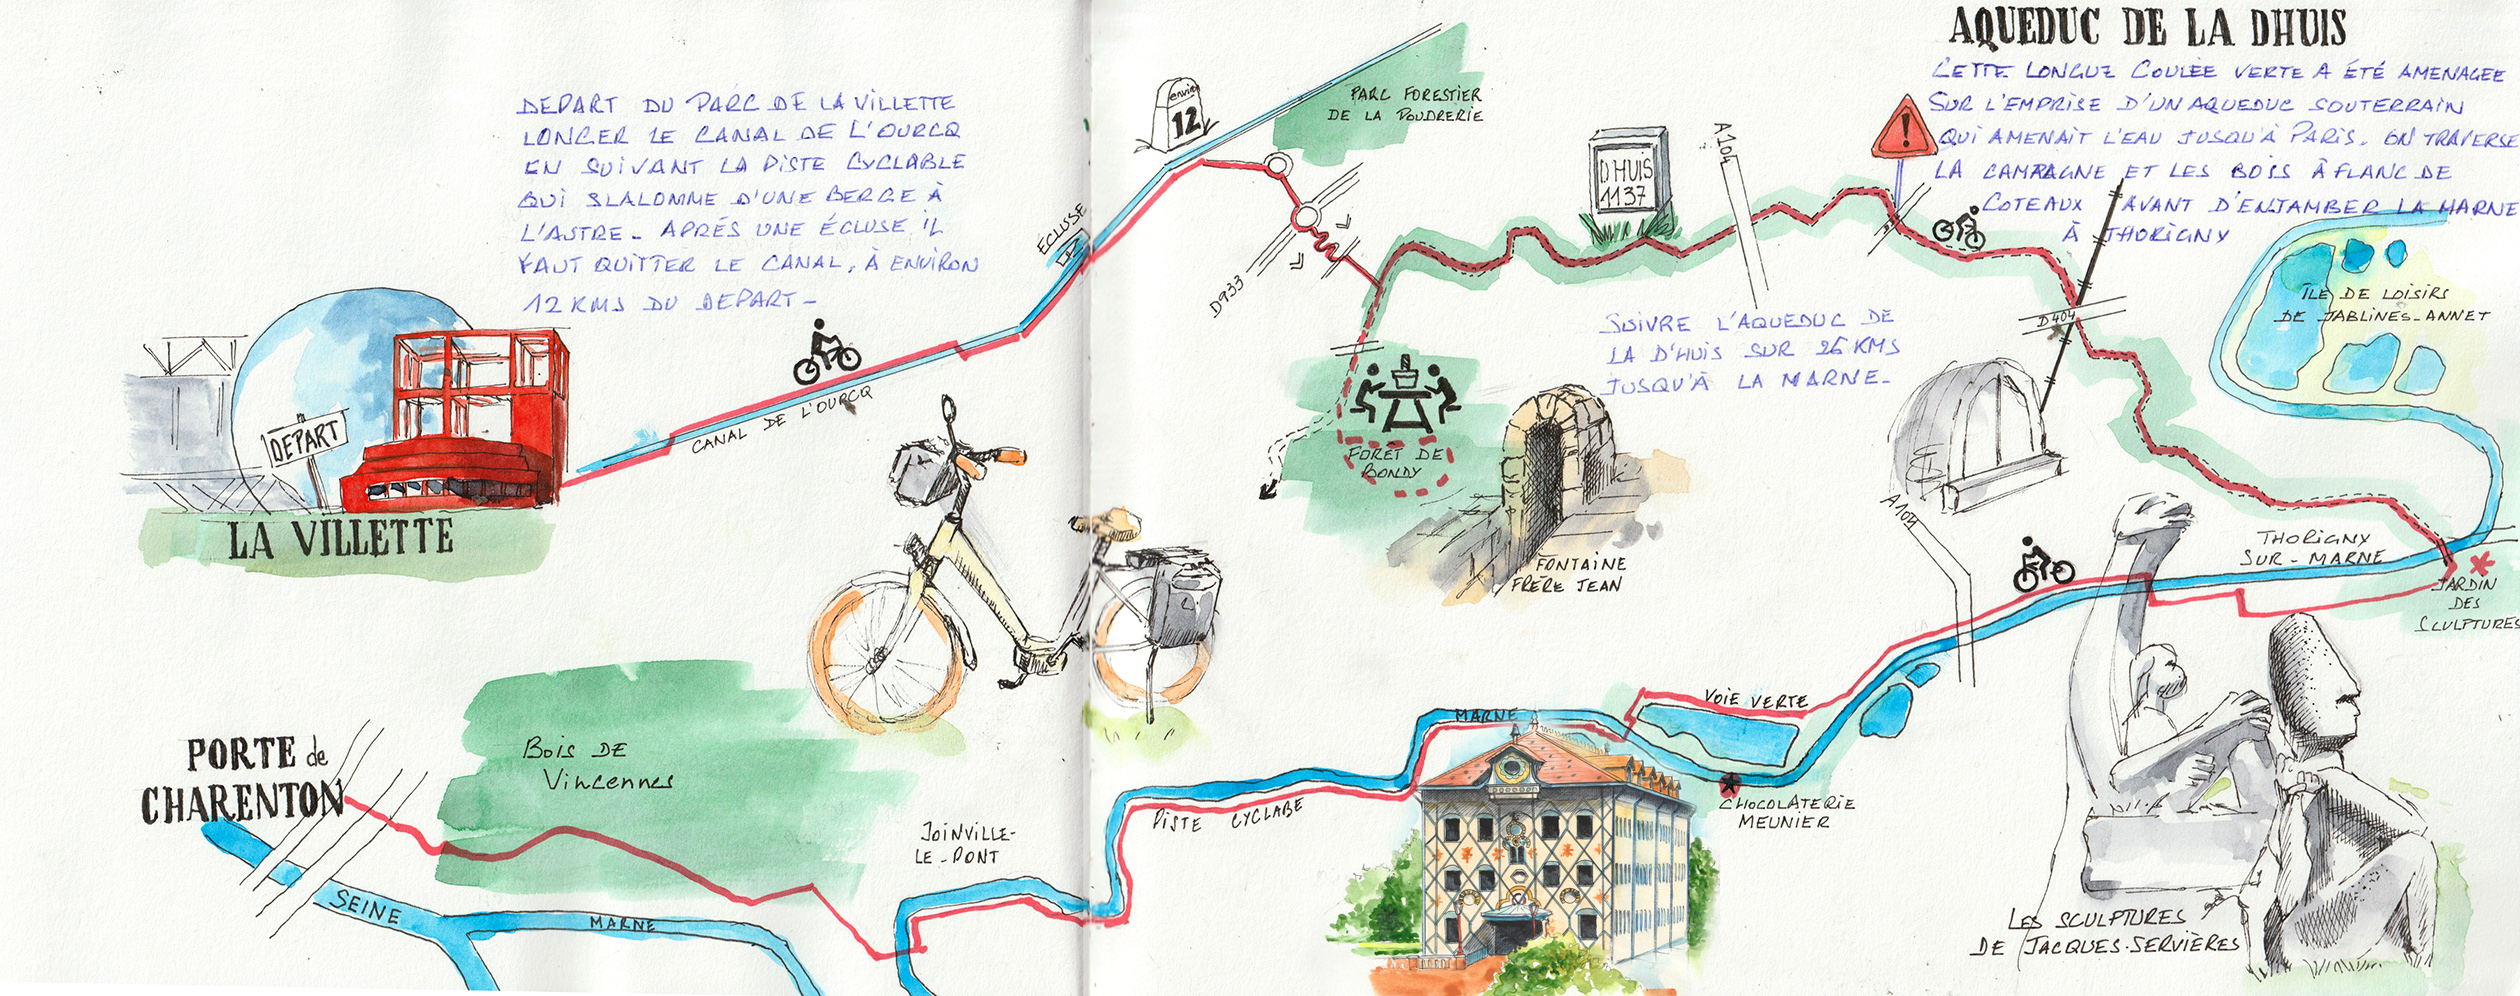 DEPART DU PARC DE LA VILLETTE
LONGER LE CANAL DE L'OURCQ
EN SUIVANT LA PISTE CYCLABLE
QUI SLALOMME D'UNE BERGE À
L'ASTRE - APRÉS UNE ÉCLUSE IL
FAUT QUITTER LE CANAL, À ENVIRON
12 KMS DU DEPART -
DEPART
LA VILLETTE
CANAL DE L'OURCQ
ECLUSE
environ
12
PARC FORESTIER
DE LA POUDRERIE
D933
DHUIS
1137
A104
AQUEDUC DE LA DHUIS
CETTE LONGUE COULÉE VERTE A ÉTÉ AMENAGEE
SUR L'EMPRISE D'UN AQUEDUC SOUTERRAIN
QUI AMENAIT L'EAU JUSQU'À PARIS. ON TRAVERSE
LA CAMPAGNE ET LES BOIS À FLANC DE
COTEAUX AVANT D'ENJAMBER LA MARNE
À THORIGNY
!
ÎLE DE LOISIRS
DE JABLINES-ANNET
D404
SUIVRE L'AQUEDUC DE
LA D'HUIS SUR 26 KMS
JUSQU'À LA MARNE -
FORÊT DE
BONDY
FONTAINE
FRÈRE JEAN
A104
THORIGNY
SUR-MARNE
JARDIN
DES
SCULPTURES
VOIE VERTE
MARNE
CHOCOLATERIE
MEUNIER
PISTE CYCLABE
JOINVILLE-
LE-PONT
BOIS DE
Vincennes
PORTE de
CHARENTON
SEINE
MARNE
LES SCULPTURES
DE JACQUES-SERVIÈRES